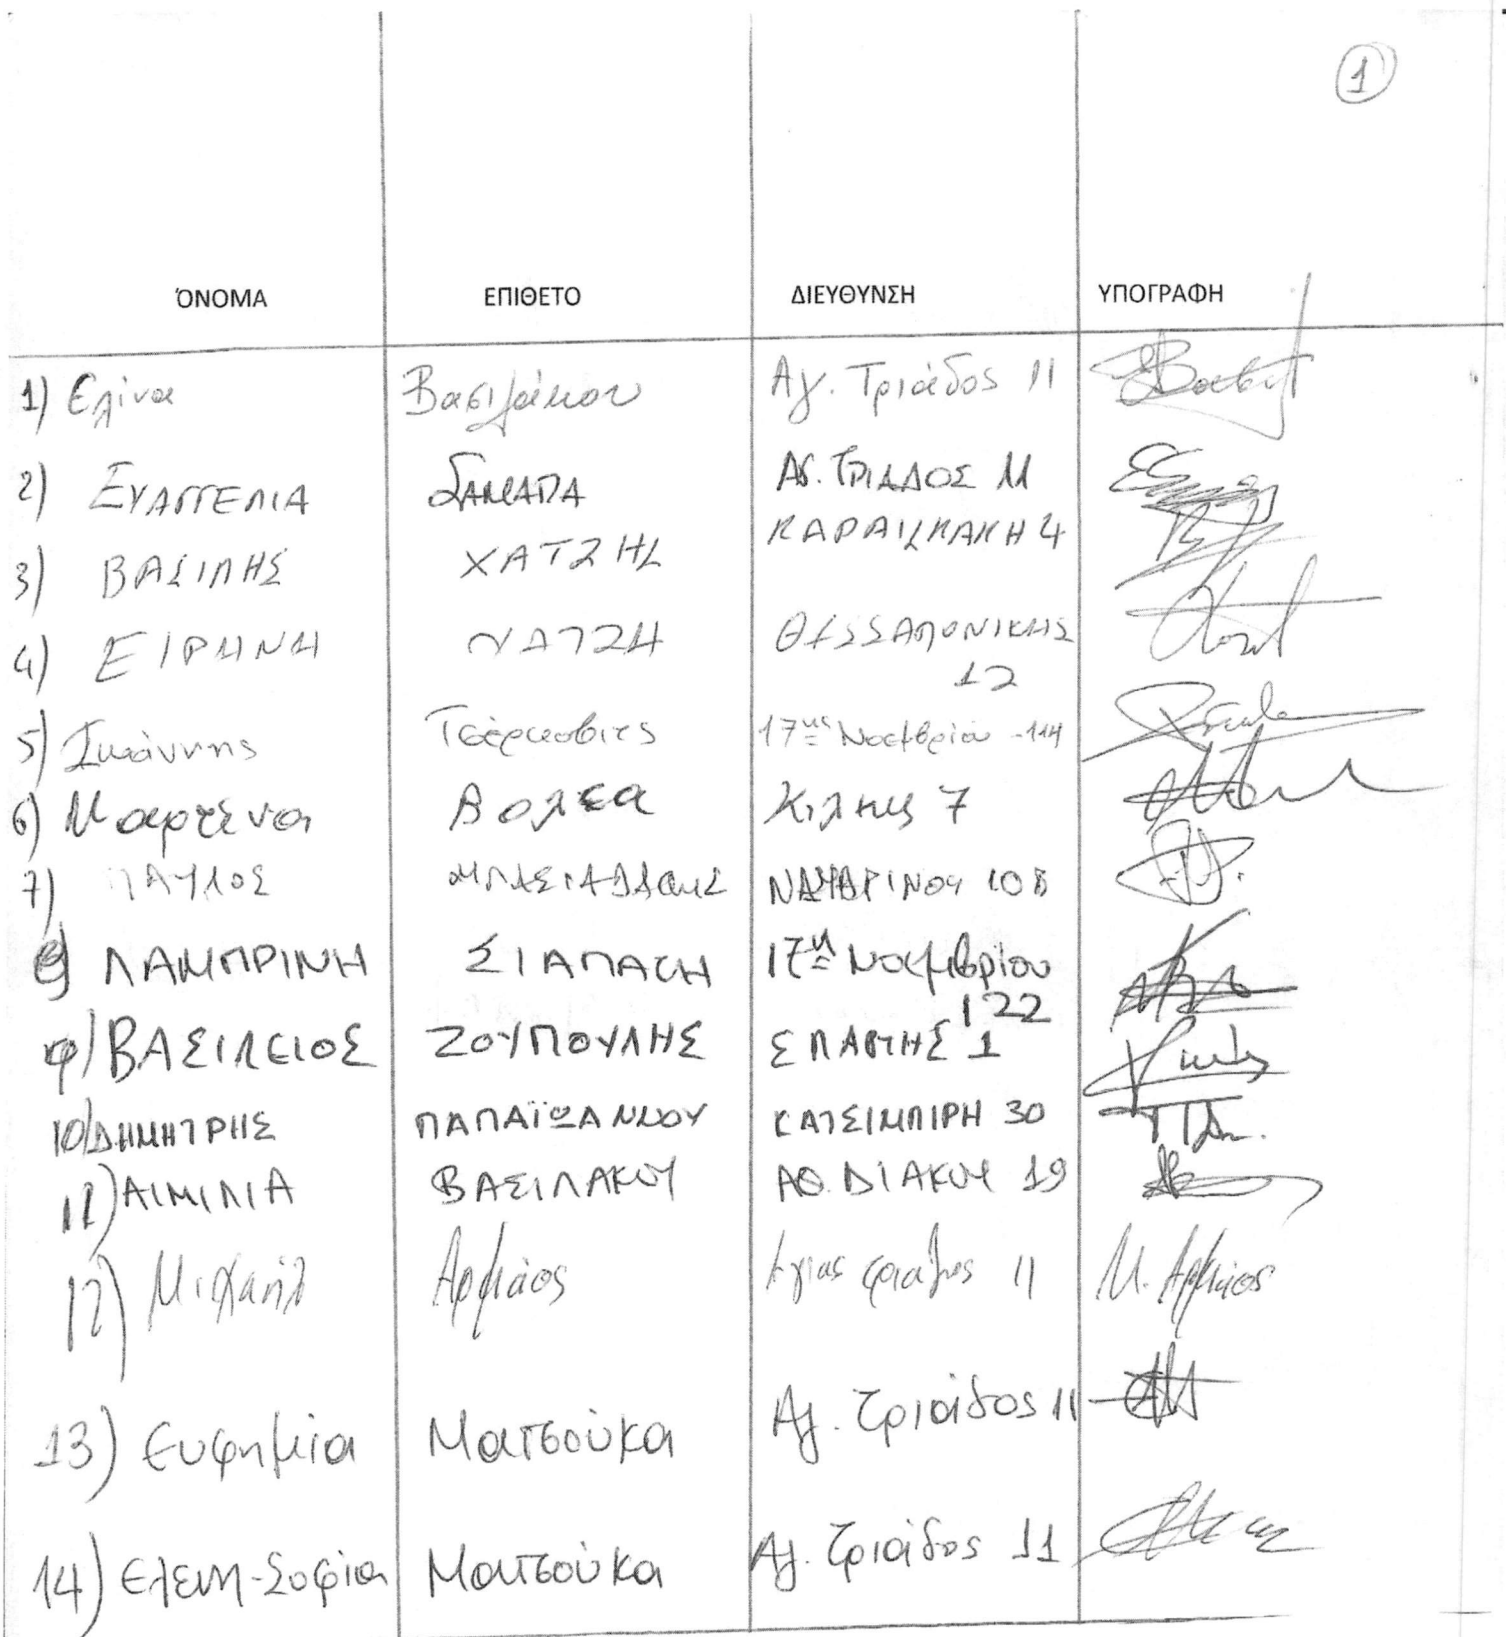 1
ΌΝΟΜΑ ΕΠΙΘΕΤΟ ΔΙΕΥΘΥΝΣΗ ΥΠΟΓΡΑΦΗ
1) Ελίνα Βασιλάκου Αγ. Τριάδος 11
2) ΕΥΑΓΓΕΛΙΑ ΣΑΜΑΡΑ ΑΓ. ΤΡΙΑΔΟΣ 11
3) ΒΑΣΙΛΗΣ ΧΑΤΖΗΣ ΚΑΡΑΙΣΚΑΚΗ 4
4) ΕΙΡΗΝΗ ΧΑΤΖΗ ΘΕΣΣΑΛΟΝΙΚΗΣ
12
5) Ιωάννης 17ης Νοεμβρίου 114
6) Μαρτίνα Βολέα Κιλκις 7
7) ΠΑΥΛΟΣ ΝΑΥΑΡΙΝΟΥ 108
8) ΛΑΜΠΡΙΝΗ ΣΙΑΠΑΤΗ 17η Νοεμβρίου
122
9) ΒΑΣΙΛΕΙΟΣ ΖΟΥΠΟΥΛΗΣ ΣΠΑΡΤΗΣ 1
10) ΔΗΜΗΤΡΗΣ ΠΑΠΑΪΩΑΝΝΟΥ ΚΑΤΣΙΜΠΙΡΗ 30
11) ΑΙΜΙΛΙΑ ΒΑΣΙΛΑΚΟΥ ΑΘ. ΔΙΑΚΟΥ 19
12) Μιχαήλ Αρμάος Αγίας τριάδος 11 Μ. Αρμάος
13) Ευφημία Ματσούκα Αγ. Τριάδος 11
14) Ελένη-Σοφία Ματσούκα Αγ. Τριάδος 11